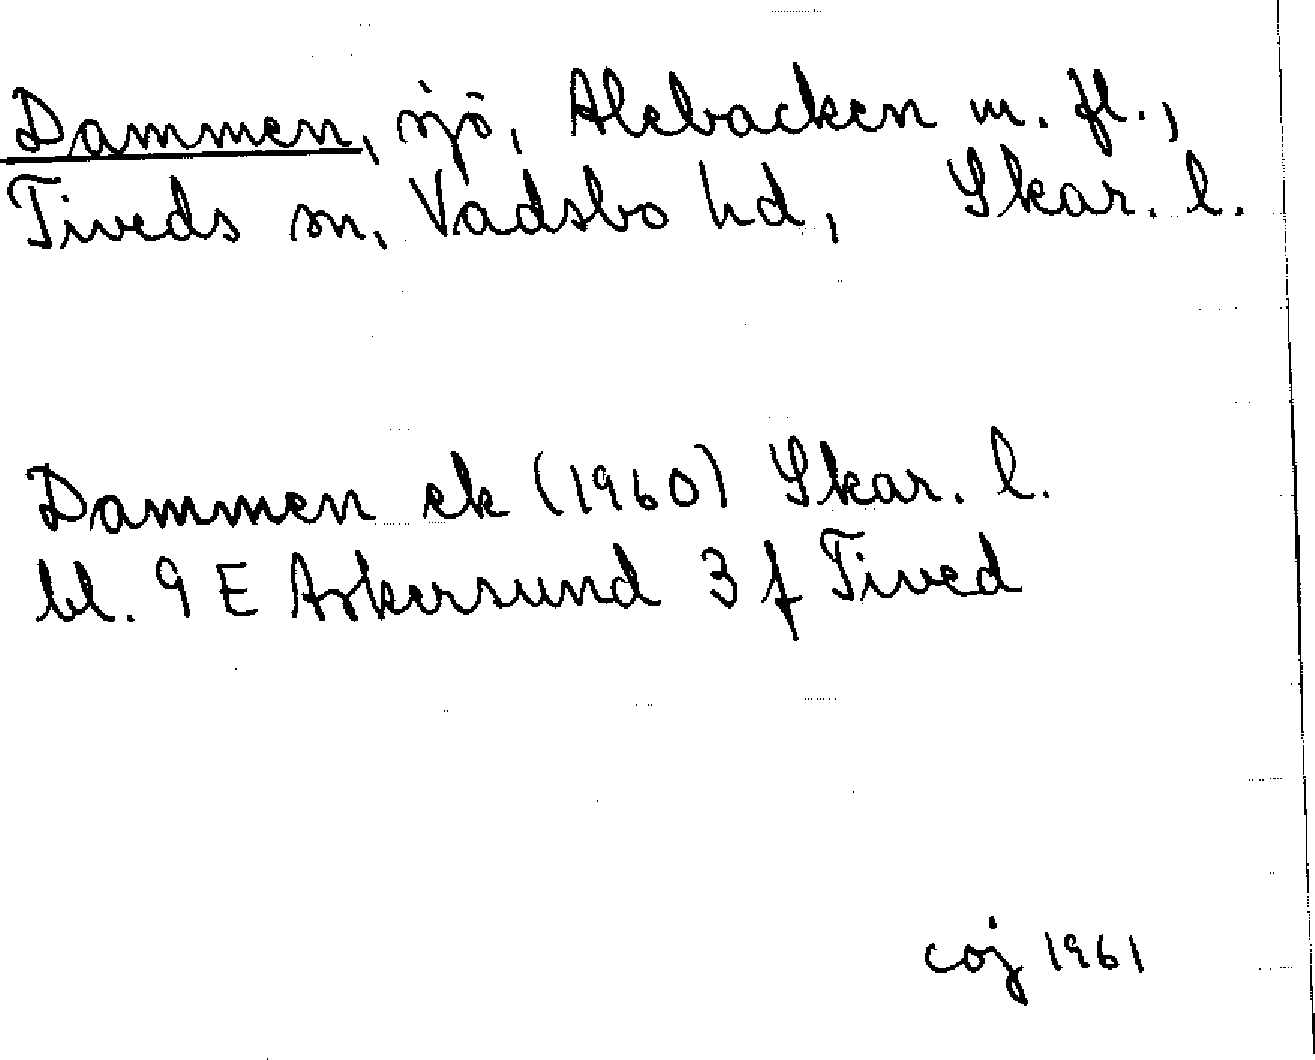 Dammen, sjö, Alebacken m. fl.,
Tiveds sn, Vadsbo hd, Skar. l.
Dammen ek (1960) Skar. l.
bl. 9 E Askersund 3 f Tived
coj 1961